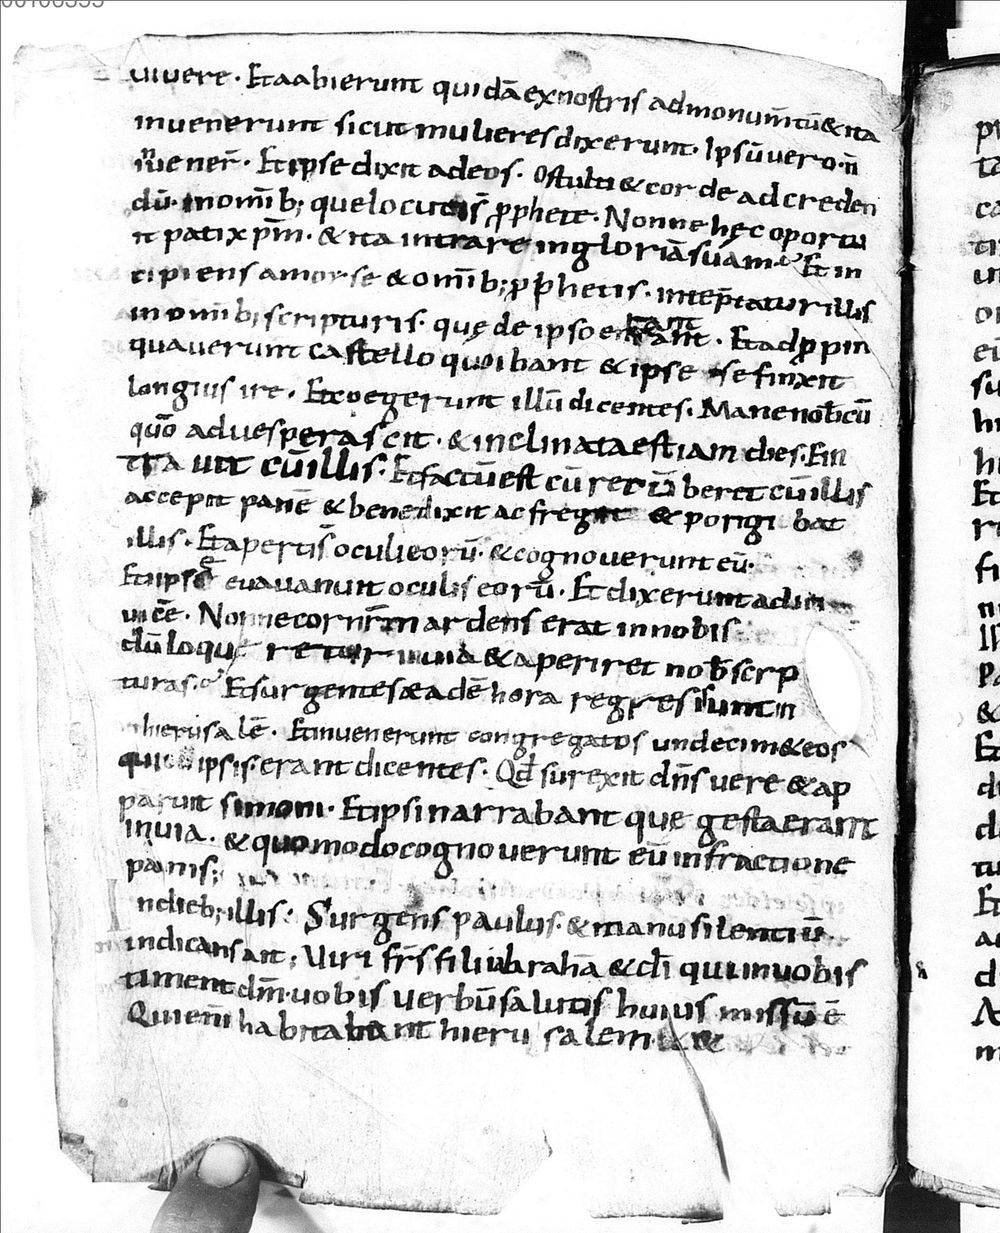 vivere. Et abierunt quidā ex nostris ad monum̄tū & ita
invenerunt sicut mulieres dixerunt. Ipsū vero n̄
īvener̄. Et ipse dixit ad eos. O stulti & corde ad creden
dū. in omīb; que locuti s̄ p̄phete. Nonne hęc oportu
it pati xp̄m. & ita intrare in gloriā suam. Et in
cipiens a moyse & omīb; p̄phetis. interp̄tatur illis
in omīb; scripturis. quę de ipso erant. Et adp̄pin
quaverunt castello quo ibant & ipse se finxit
longius ire. Et coegerunt illū dicentes. Mane nob̄cū
quō advesperascit. & inclinata est iam dies. Et in
travit cū illis. Et factū est cū recū beret cū illis
accepit panē & benedixit ac fregit & porrigi bat
illis. Et aperti s̄ oculi eorū. & cognoverunt eū.
Et ipse evavanuit oculis eorū. Et dixerunt ad in
vicē. Nonne cor nr̄m ardens erat in nobis
dū loque retur in via & aperiret nob̄ scrip
turas. Et surgentes eadē hora regressi sunt in
hierusalē. Et invenerunt congregatos undecim & eos
qui ipsis erant dicentes. Qd̄ surexit dn̄s vere & ap
paruit simoni. Et ipsi narrabant que gesta erant
in via. & quomodo cognoverunt eū in fractione
panis;
In dieb; illis. Surgens paulus. & manu silentiū
indicans ait; Viri fr̄s filii abrahā & q̄i in vobis
timent dm̄. vobis verbū salutis huius missū ē
Qui enī habitabant hierusalem. &